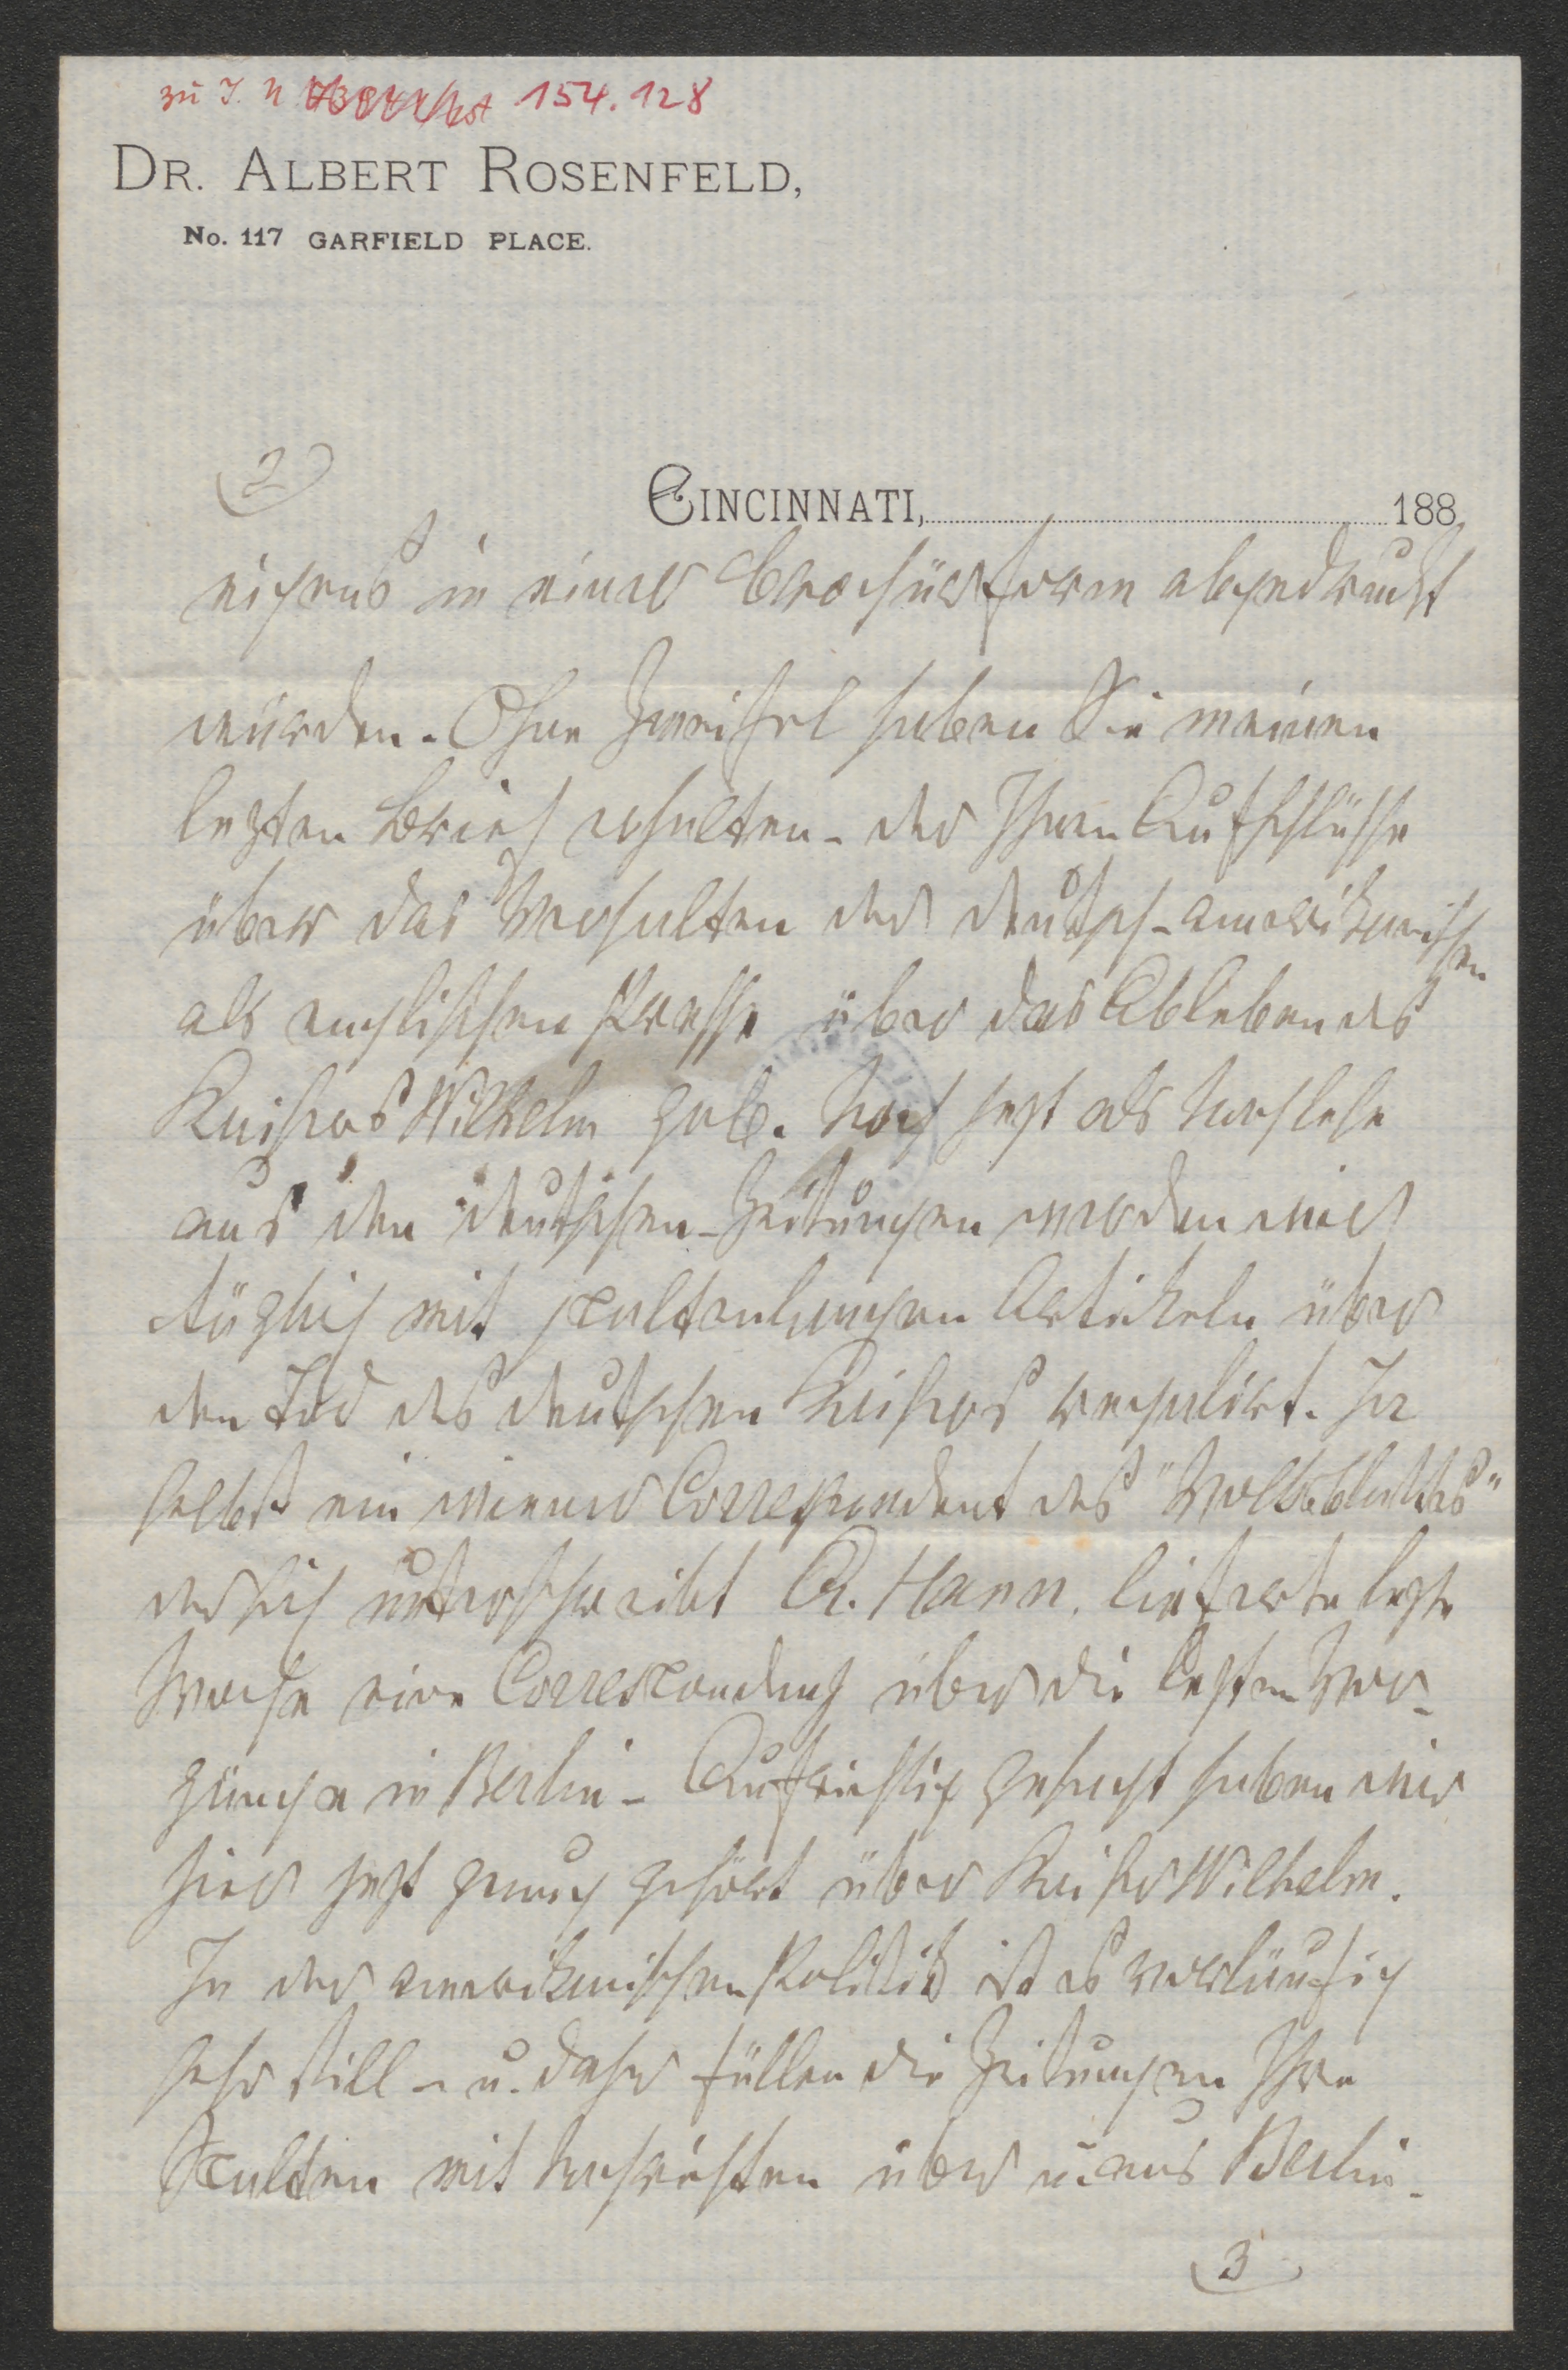 zu I. N. 154.128
DR. ALBERT ROSENFELD,
No. 117 GARFIELD PLACE.
2
CINCINNATI, 188
eigens in einer Brochürform abgedruckt
würden. Ohne Zweifel haben Sie meinen
lezten Brief erhalten – der Ihnen Aufschlüsse
über das Verhalten der deutsch-amerikanischen
als englischen Presse über das Ableben des
Kaisers Wilhelm gab. Noch jezt als Nachlese
aus den deutschen Zeitungen werden wir
täglich mit spaltenlangen Artikeln über
den Tod des deutschen Kaisers regulirt. Ja
selbst ein wiener Correspondent des "Volksblattes"
der sich unterschreibt A. Hann. lieferte lezte
Woche eine Correspondenz über die lezten Vor-
gänge in Berlin – Aufrichtig gesagt haben wir
hier jezt genug gehört über Kaiser Wilhelm.
In der amerikanischen Politik ist es vorläufig
sehr still – u. daher füllen die Zeitungen Ihre
Spalten mit Nachrichten über u. aus Berlin –
3